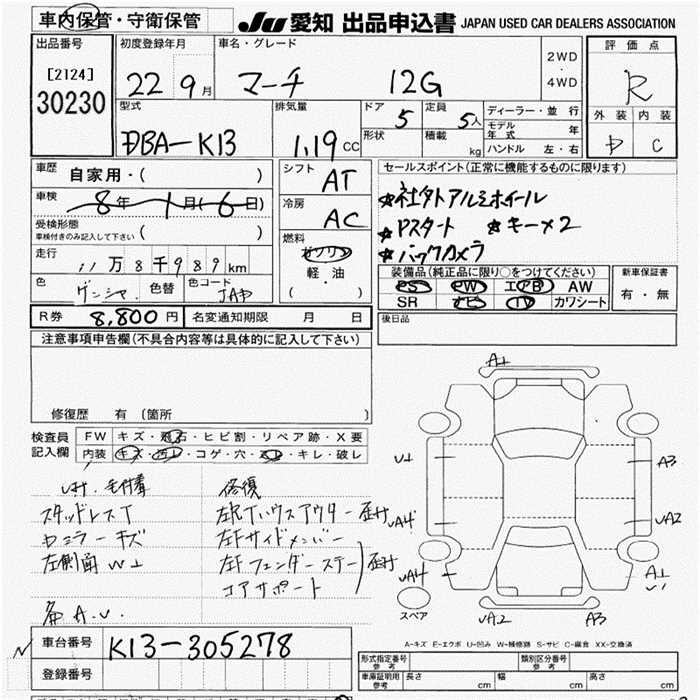 車内保管・守衛保管
JU 愛知 出品申込書 JAPAN USED CAR DEALERS ASSOCIATION
出品番号
[2124]
30230
初度登録年月
22 9 月
車名・グレード
マーチ 12G
2WD
・
4WD
評価点
R
外装 内装
C
型式
DBA-K13
排気量
1.19 CC
ドア
5
定員
5人
形状
積載
kg
ディーラー・並行
モデル年式 年
ハンドル 左・右
車歴
自家用・( )
車検
8年 1月(6日)
受検形態
車検付きのみ記入して下さい ( )
走行
11万8千989km
色 色替 色コード
JAD
シフト
AT
冷房
AC
燃料
ガソリン
軽・油
( ・ )
セールスポイント(正常に機能するものに限ります)
☆社外アルミホイール
☆Pスタート ☆キー×2
☆バックカメラ
装備品(純正品に限り○をつけてください)
PS PW エアB AW
SR ナビ TV カワシート
新車保証書
有・無
後日品
R券 8,800円 名変通知期限 月 日
注意事項申告欄(不具合内容等は具体的に記入して下さい)
修復歴 有 [箇所 ]
検査員
記入欄
FW キズ・飛石・ヒビ割・リペア跡・X要
内装 キズ・汚レ・コゲ・穴・スレ・キレ・破レ
スタッドレスT
Dミラーキズ
左側面 W1
各A.U.
修復
左Rタハウスアウター歪み
左Fサイドメンバー
左Fフェンダーステー 歪み
コアサポート
A1
U1
A3
UA4
UA2
UA4
A1
U1
UA2
A3
スペア
A-キズ E-エクボ U-凹み W-補修跡 S-サビ C-腐食 XX-交換済
車台番号 K13-305278
登録番号
形式指定番号 参考
類別区分番号 参考
車庫証明用 参考
長さ cm
幅 cm
高さ cm